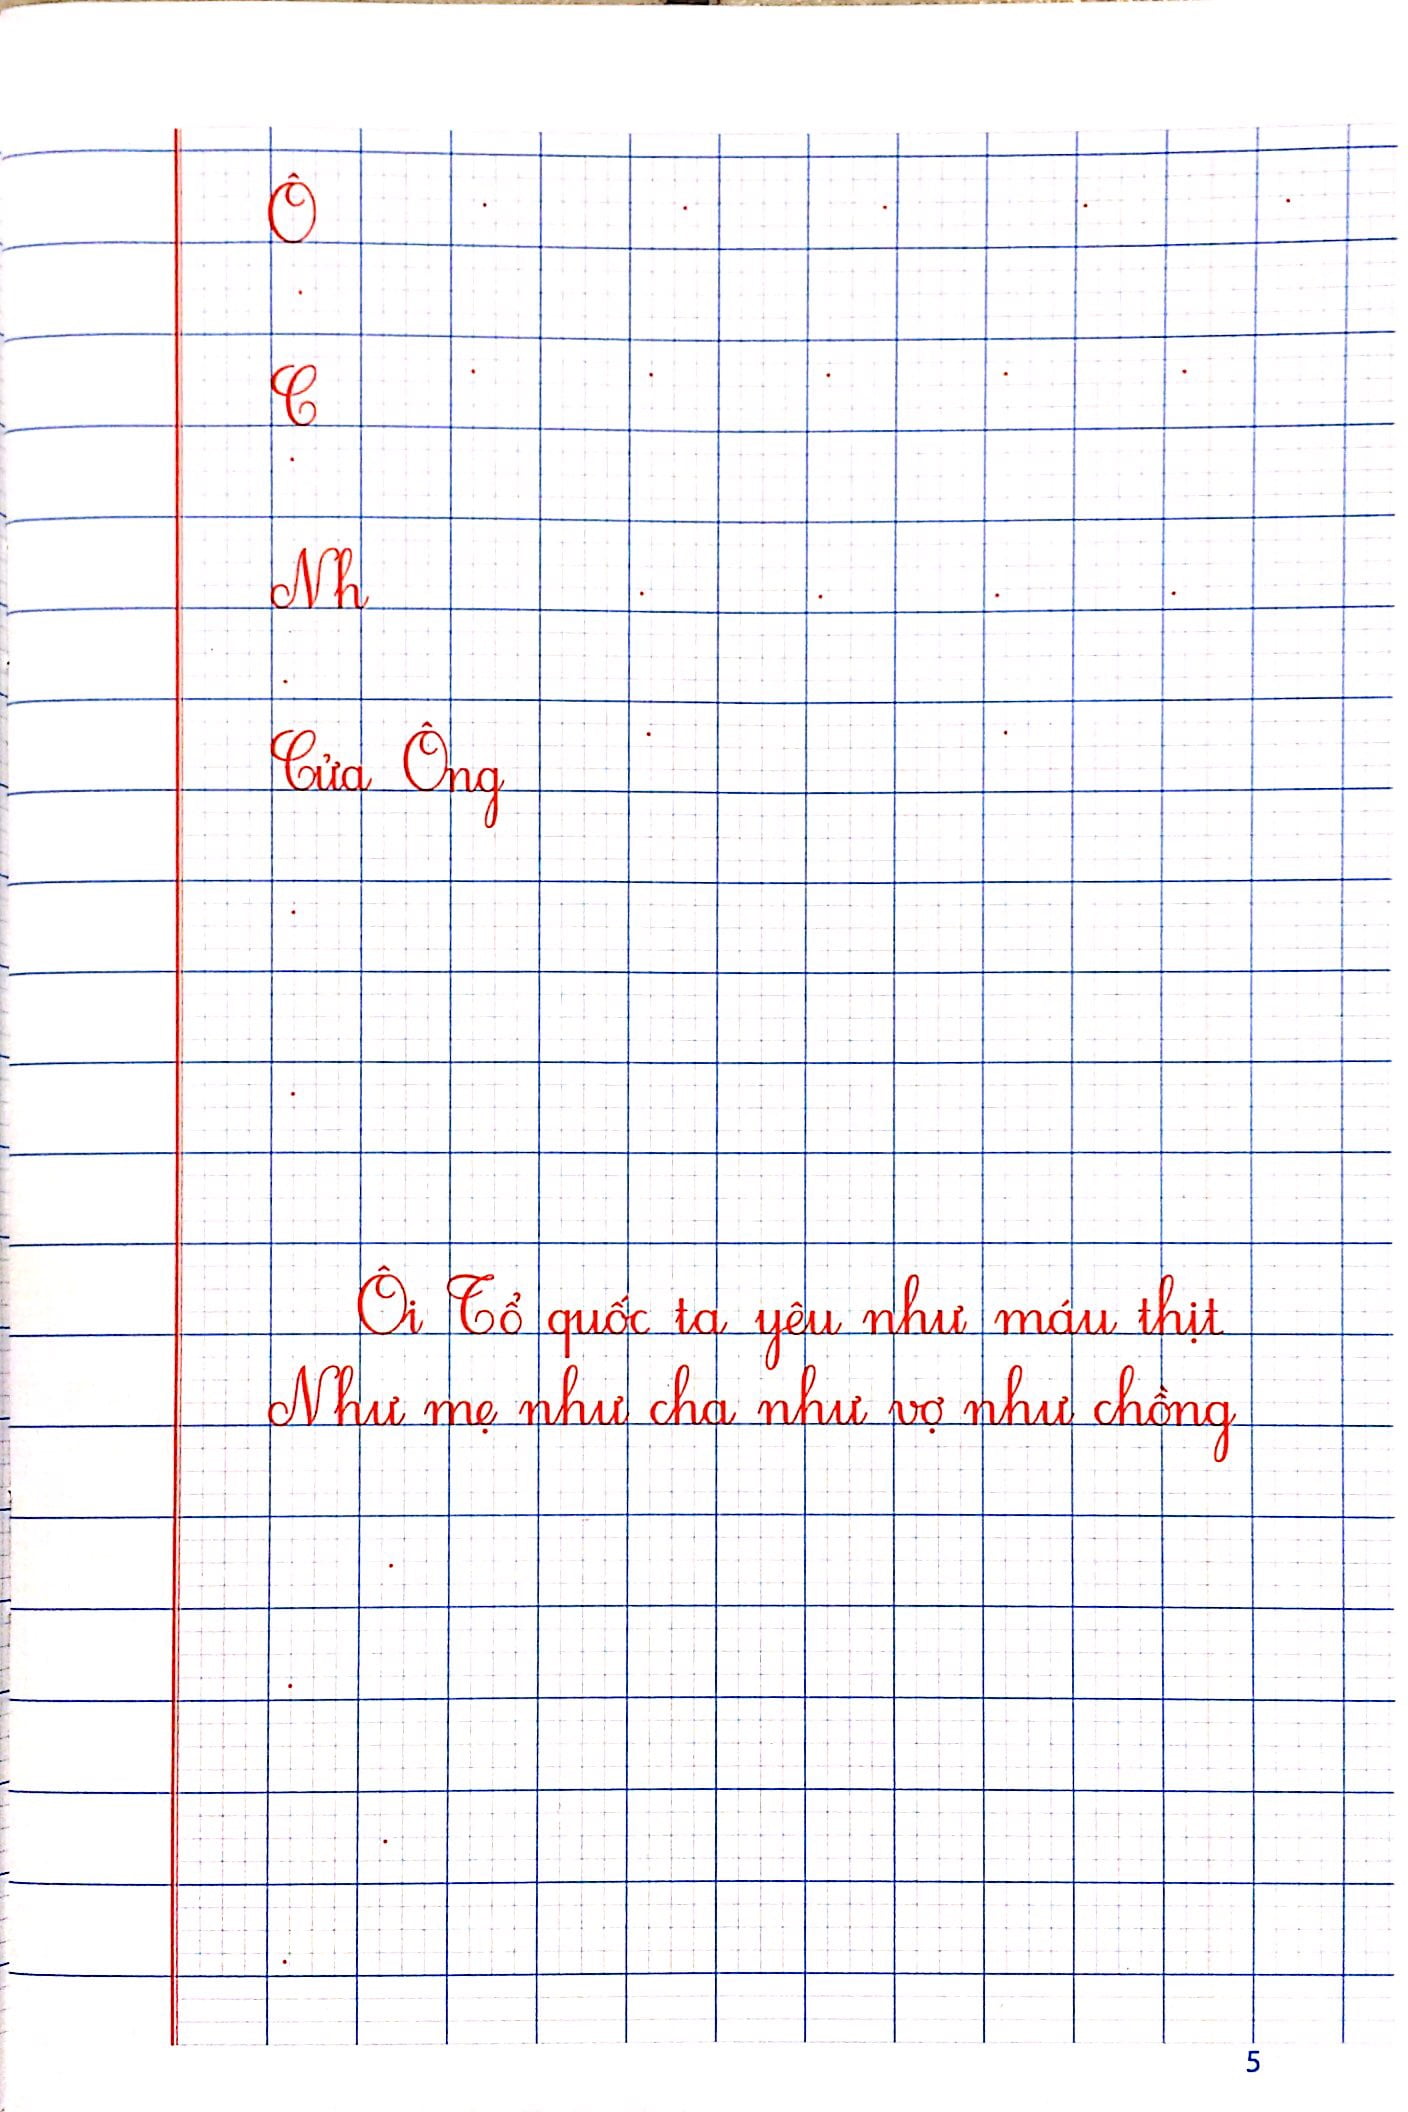 Ô
C
Nh
Cửa Ông
Ôi Tổ quốc ta yêu như máu thịt
Như mẹ như cha như vợ như chồng
5